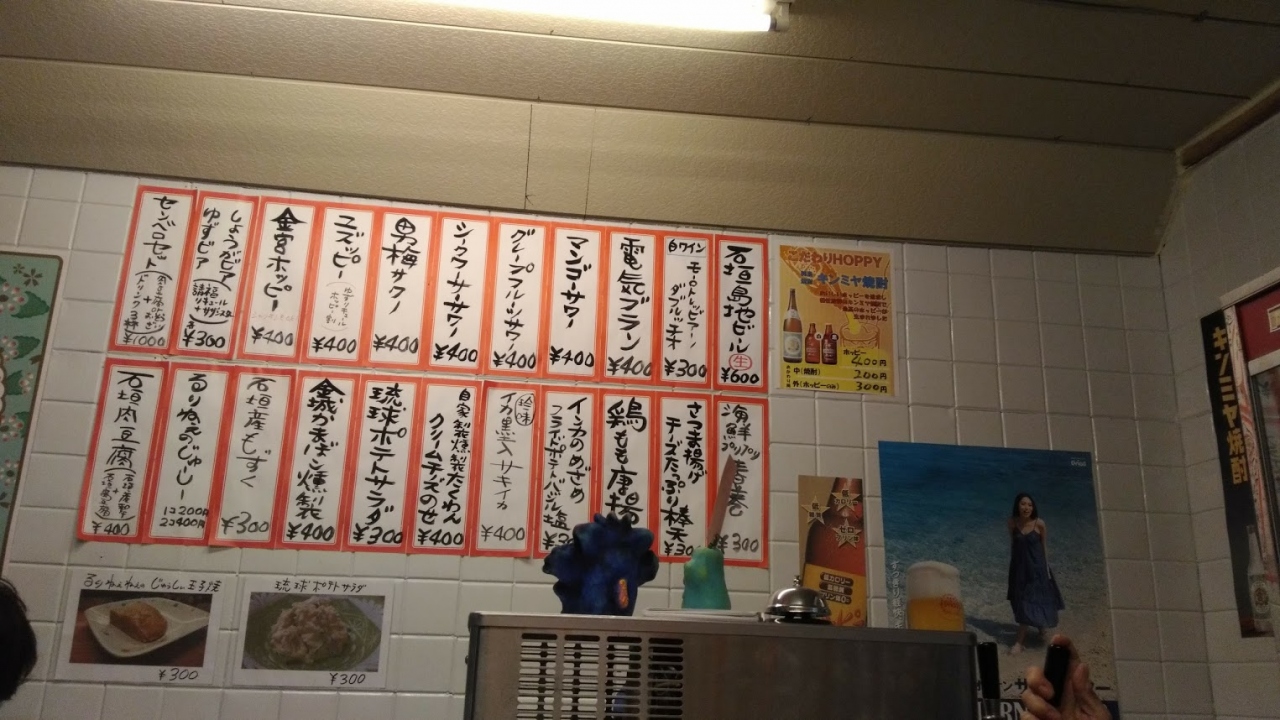 石垣島地ビール 生 ¥600
白ワイン
¥300
電気ブラン ¥400
マンゴーサワー ¥400
グレープフルーツサワー ¥400
シークワーサーサワー ¥400
男梅サワー ¥400
ユズッピー ¥400
金宮ホッピー ¥400
しょうがビア
ゆずビア
¥300
センベロセット
¥1000
海鮮
¥300
さつま揚げ
チーズたっぷり棒天
鶏もも唐揚
インカのめざめ
フライドポテト バジル塩
珍味
イカ墨入サキイカ ¥400
自家製燻製たくわん
クリームチーズのせ ¥400
琉球ポテトサラダ ¥300
金城かまぼこ燻製 ¥400
石垣産もずく ¥300
るりねえのじゅーしー
1コ200円
2コ400円
石垣肉豆腐
¥400
こだわりHOPPY
キンミヤ焼酎
ホッピー 400円
中(焼酎) 200円
外(ホッピーのみ) 300円
¥300
琉球ポテトサラダ
¥300
キンミヤ焼酎